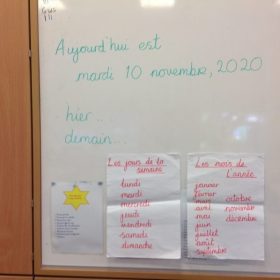 Aujourd'hui est
mardi 10 novembre, 2020
hier..
demain...
Les jours de la
semaine
lundi
mardi
mercredi
jeudi
vendredi
samedi
dimanche
Les mois de
L'année
janvier
février
mars
avril
mai
juin
juillet
août
septembre
octobre
novembre
décembre